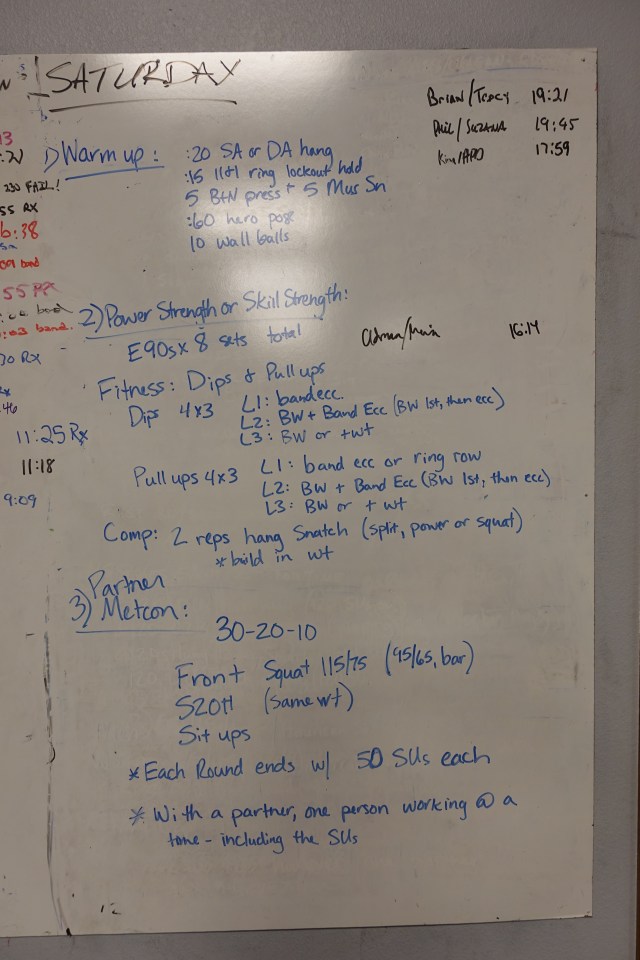 SATURDAY
Brian/Tracy 19:21
Phil/Suzana 19:45
17:59
1) Warm up: :20 SA or DA hang
:15 ring lockout hold
5 BTN press + 5 Mus Sn
:60 hero pose
10 wall balls
2) Power Strength or Skill Strength:
E90s x 8 sets total
16:14
Fitness: Dips & Pull ups
Dips 4x3 L1: band ecc.
L2: BW + Band Ecc (BW 1st, then ecc)
L3: BW or +wt
Pull ups 4x3 L1: band ecc or ring row
L2: BW + Band Ecc (BW 1st, then ecc)
L3: BW or + wt
Comp: 2 reps hang Snatch (split, power or squat)
*build in wt
3) Partner
Metcon:
30-20-10
Front Squat 115/75 (95/65, bar)
S2OH (same wt)
Sit ups
*Each Round ends w/ 50 SUs each
* With a partner, one person working @ a
time - including the SUs
230 FAIL!
55 RX
11:25 Rx
11:18
9:09